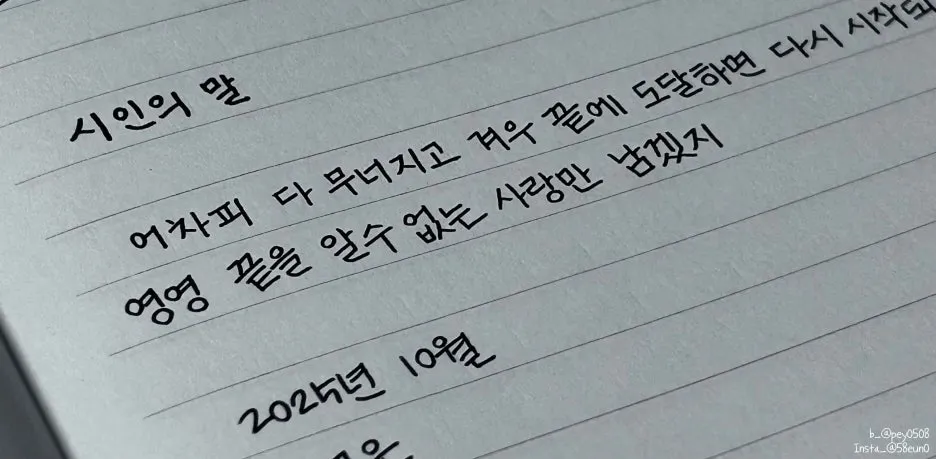 시인의 말
어차피 다 무너지고 겨우 끝에 도달하면 다시 시작되
영영 끝을 알수 없는 사랑만 남겠지
2025년 10월
b_@pey0508
Insta_@58eun0